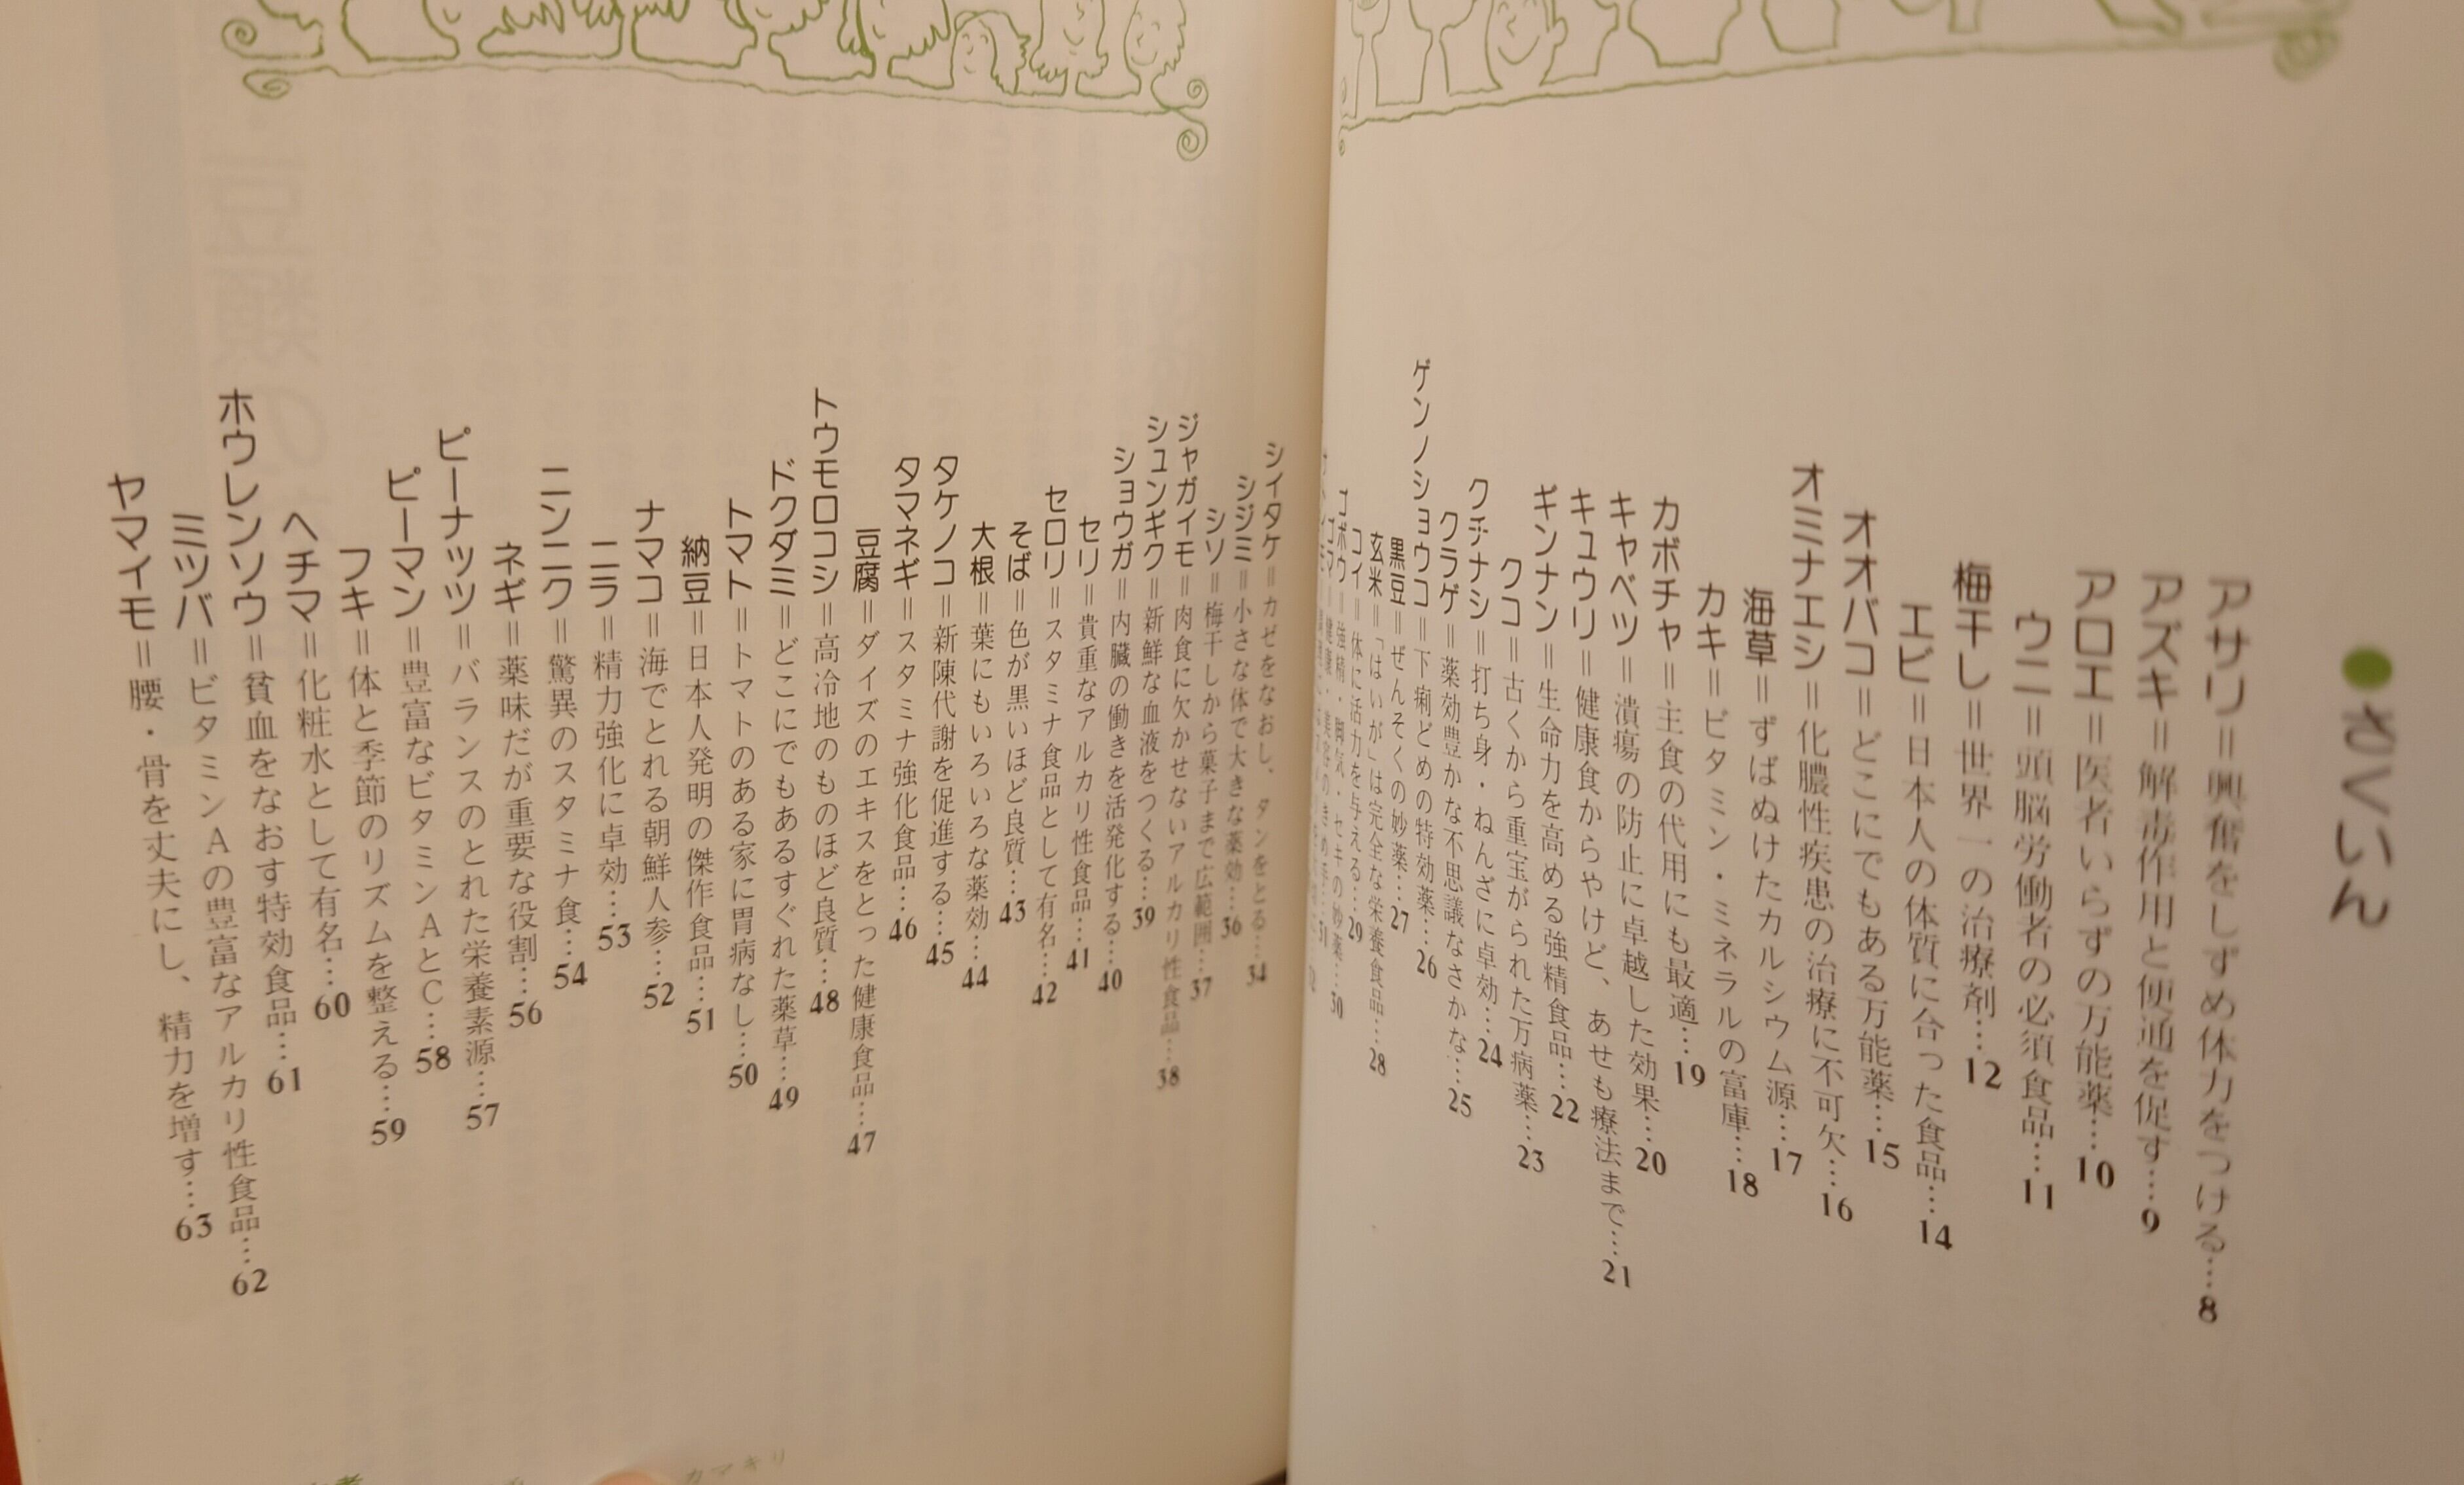 ●さくいん
アサリ＝興奮をしずめ体力をつける……8
アズキ＝解毒作用と便通を促す……9
アロエ＝医者いらずの万能薬……10
ウニ＝頭脳労働者の必須食品……11
梅干し＝世界一の治療剤……12
エビ＝日本人の体質に合った食品……14
オオバコ＝どこにでもある万能薬……15
オミナエシ＝化膿性疾患の治療に不可欠……16
海草＝ずばぬけたカルシウム源……17
カキ＝ビタミン・ミネラルの富庫……18
カボチャ＝主食の代用にも最適……19
キャベツ＝潰瘍の防止に卓越した効果……20
キュウリ＝健康食からやけど、あせも療法まで……21
ギンナン＝生命力を高める強精食品……22
クコ＝古くから重宝がられた万病薬……23
クチナシ＝打ち身・ねんざに卓効……24
クラゲ＝薬効豊かな不思議なさかな……25
ゲンノショウコ＝下痢どめの特効薬……26
黒豆＝ぜんそくの妙薬……27
玄米＝「はいが」は完全な栄養食品……28
コイ＝体に活力を与える……29
ゴボウ＝強精・脚気・セキの妙薬……30
ゴマ＝健康・美容のきめ手……31
シイタケ＝カゼをなおし、タンをとる……34
シジミ＝小さな体で大きな薬効……36
シソ＝梅干しから菓子まで広範囲……37
ジャガイモ＝肉食に欠かせないアルカリ性食品……38
シュンギク＝新鮮な血液をつくる……39
ショウガ＝内臓の働きを活発化する……40
セリ＝貴重なアルカリ性食品……41
セロリ＝スタミナ食品として有名……42
そば＝色が黒いほど良質……43
大根＝葉にもいろいろな薬効……44
タケノコ＝新陳代謝を促進する……45
タマネギ＝スタミナ強化食品……46
豆腐＝ダイズのエキスをとった健康食品……47
トウモロコシ＝高冷地のものほど良質……48
ドクダミ＝どこにでもあるすぐれた薬草……49
トマト＝トマトのある家に胃病なし……50
納豆＝日本人発明の傑作食品……51
ナマコ＝海でとれる朝鮮人参……52
ニラ＝精力強化に卓効……53
ニンニク＝驚異のスタミナ食……54
ネギ＝薬味だが重要な役割……56
ピーナッツ＝バランスのとれた栄養素源……57
ピーマン＝豊富なビタミンAとC……58
フキ＝体と季節のリズムを整える……59
ヘチマ＝化粧水として有名……60
ホウレンソウ＝貧血をなおす特効食品……61
ミツバ＝ビタミンAの豊富なアルカリ性食品……62
ヤマイモ＝腰・骨を丈夫にし、精力を増す……63
カマキリ